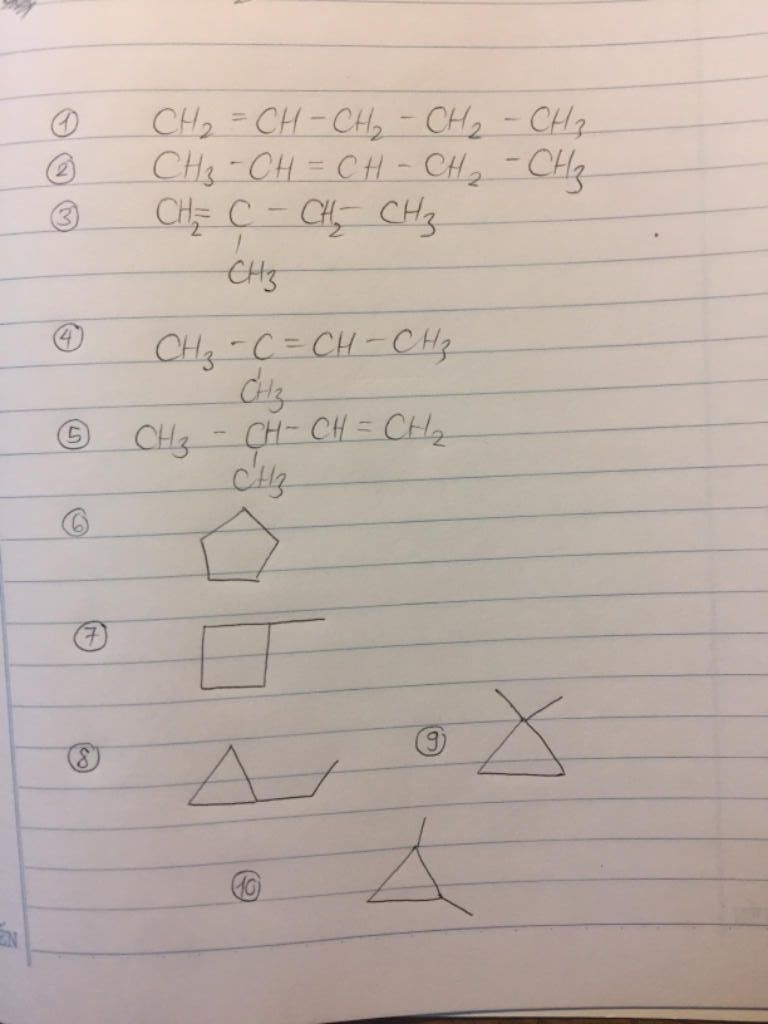 ① CH₂ = CH - CH₂ - CH₂ - CH₃
② CH₃ - CH = CH - CH₂ - CH₃
③ CH₂ = C - CH₂ - CH₃
CH₃
④ CH₃ - C = CH - CH₃
CH₃
⑤ CH₃ - CH - CH = CH₂
CH₃
⑥
⑦
⑧
⑨
⑩